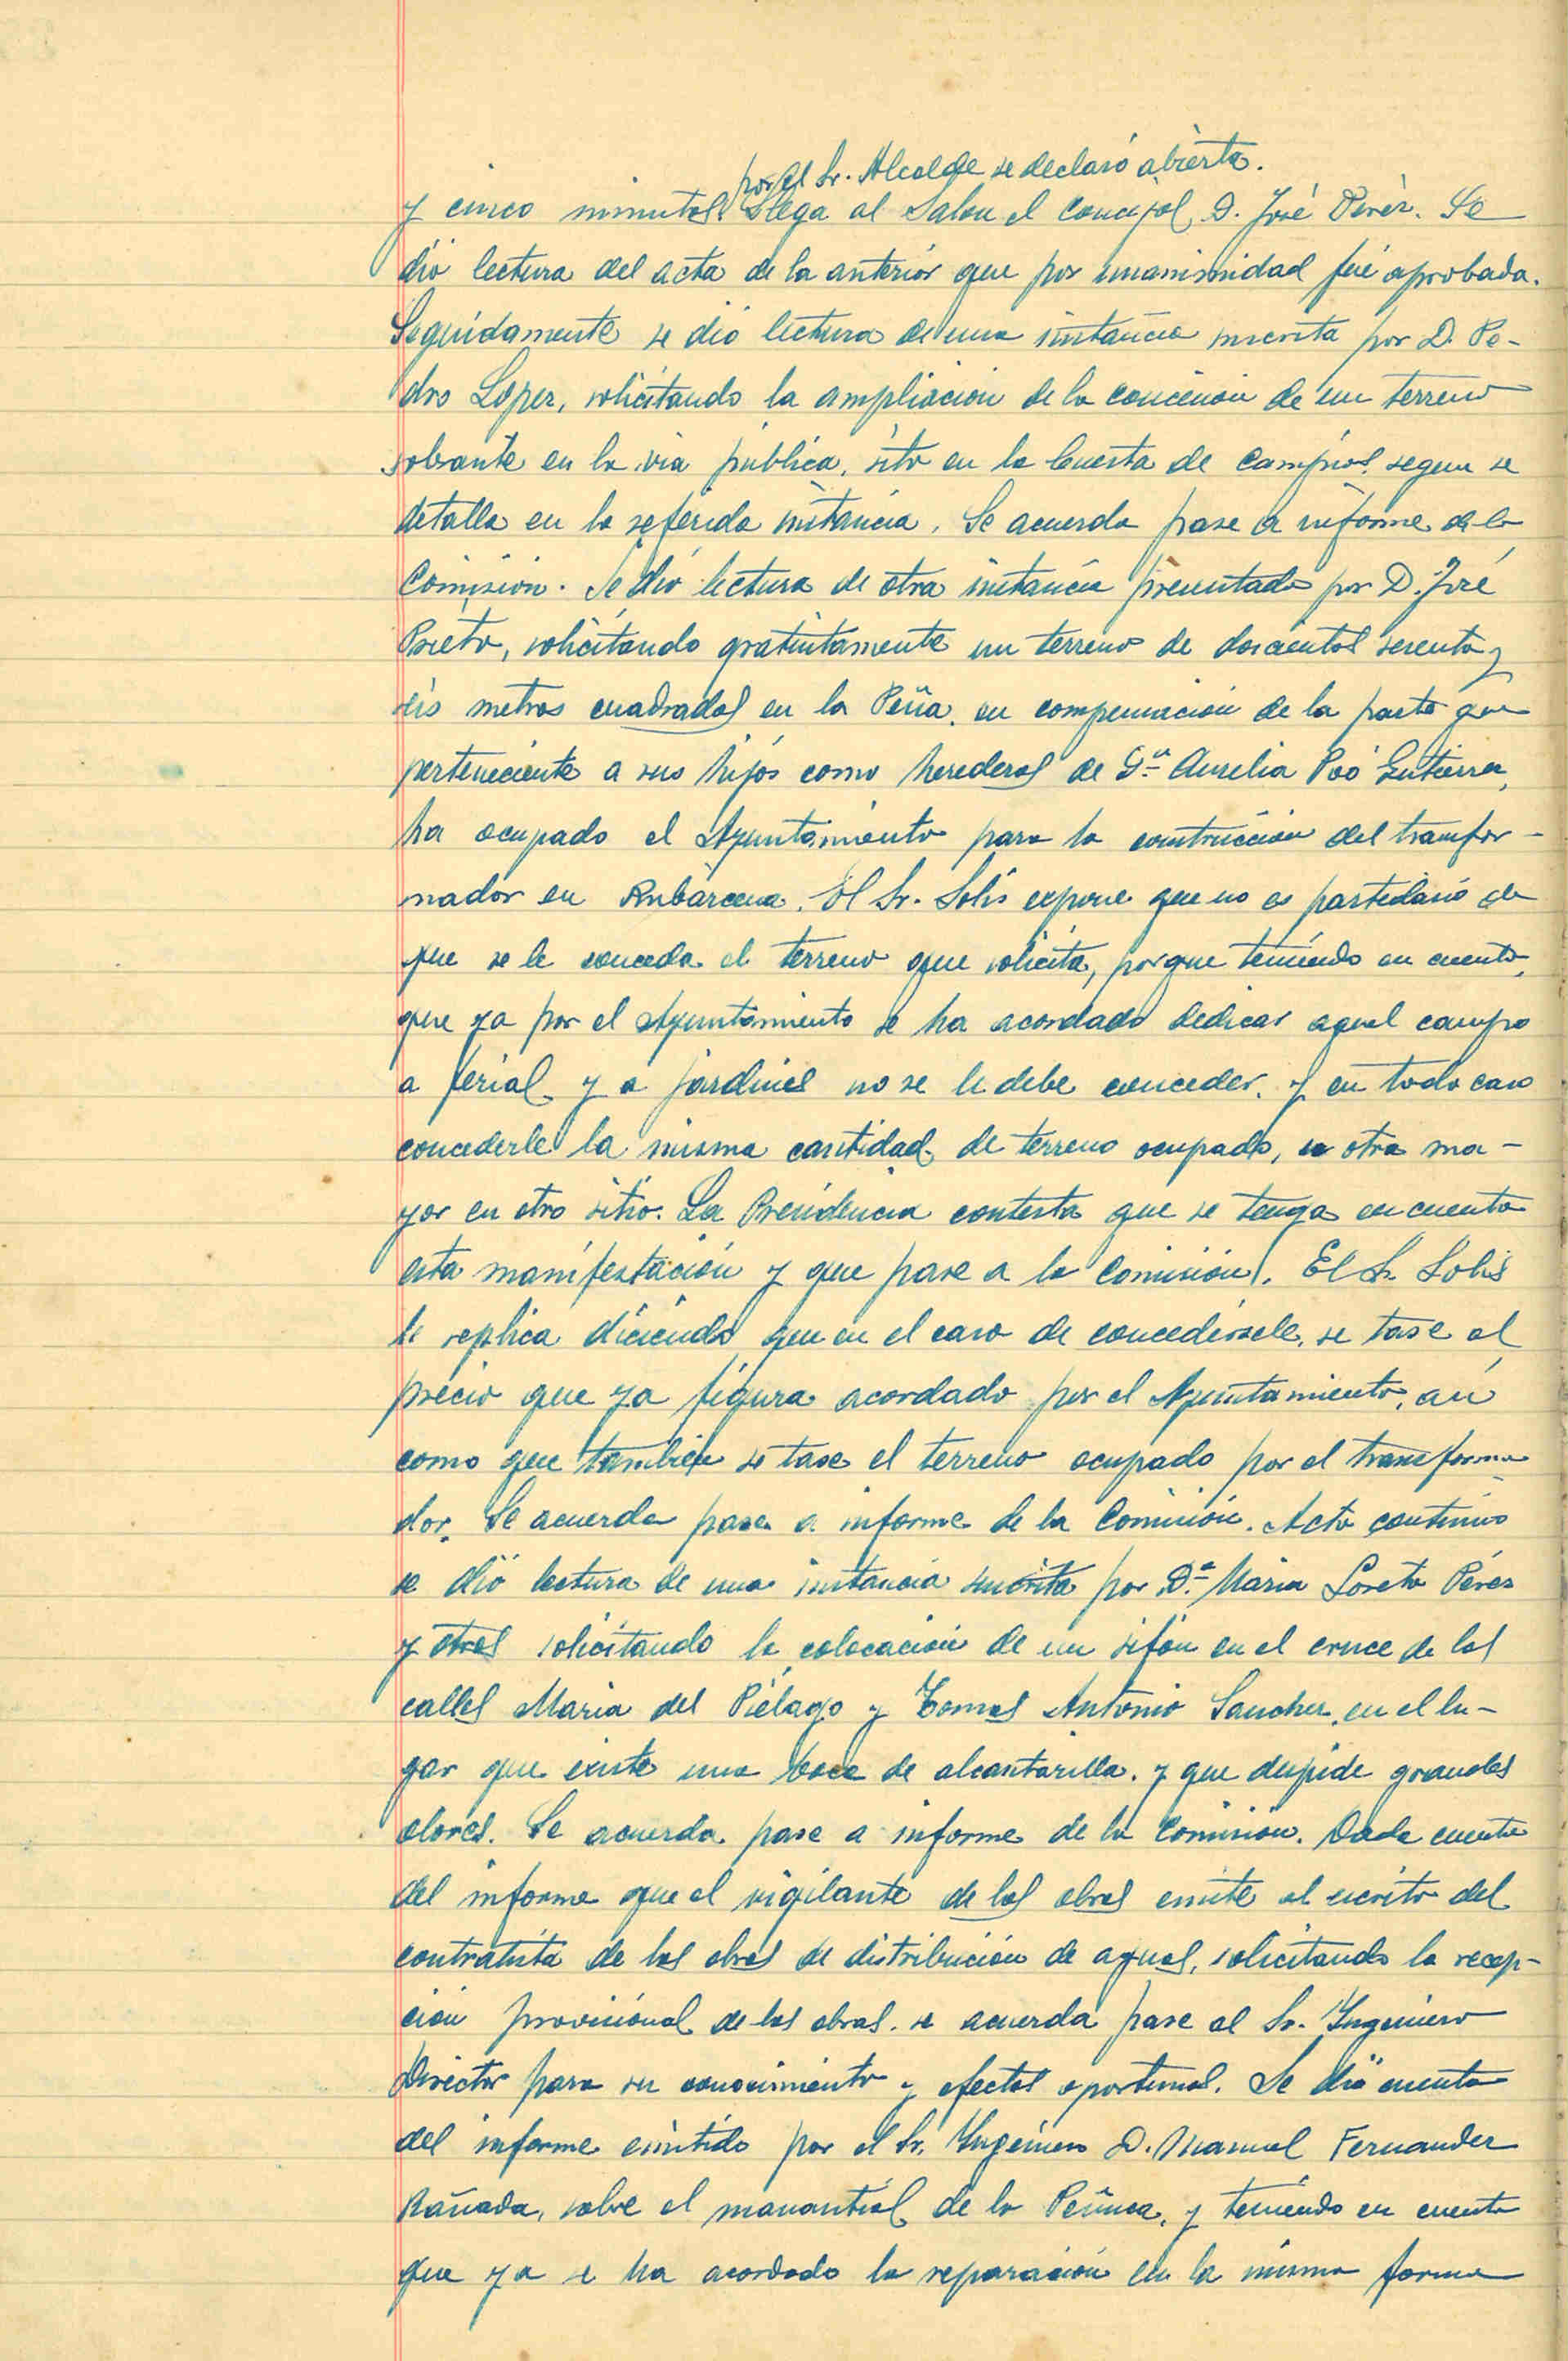 por el Sr. Alcalde se declaró abierta.
y cinco minutos. Llega al Salon el Concejal D. José Pérez. Se
dió lectura del acta de la anterior que por unanimidad fué aprobada.
Seguidamente se dió lectura de una instancia suscrita por D. Pe-
dro Lopez, solicitando la ampliacion de la concesion de un terreno
sobrante en la via publica, sito en la Cuesta de Campios, segun se
detalla en la referida instancia. Se acuerda pase a informe de la
Comision. Se dió lectura de otra instancia presentada por D. José
Prieto, solicitando gratuitamente un terreno de doscientos sesenta y
seis metros cuadrados en la Peña, en compensacion de la parte que
perteneciente a sus hijos como herederos de Dª Aurelia Poó Gutierrez,
ha ocupado el Ayuntamiento para la construccion del transfor-
mador en Rubarcena. El Sr. Solis expone que no es partidario de
que se le conceda el terreno que solicita, porque teniendo en cuenta,
que ya por el Ayuntamiento se ha acordado dedicar aquel campo
a ferial y a jardines no se le debe conceder, y en todo caso
concederle la misma cantidad de terreno ocupado, u otra ma-
yor en otro sitio. La Presidencia contesta que se tenga en cuenta
esta manifestación y que pase a la Comisión. El Sr. Solis
le replica diciendo que en el caso de concedérsele, se tase al
precio que ya figura acordado por el Ayuntamiento, asi
como que tambien se tase el terreno ocupado por el transforma-
dor. Se acuerda pase a informe de la Comisión. Acto continuo
se dió lectura de una instancia suscrita por Dª Maria Loreto Pérez
y otros solicitando la colocacion de un sifon en el cruce de las
calles Maria del Piélago y Tomas Antonio Sanchez, en el lu-
gar que existe una boca de alcantarilla, y que despide grandes
olores. Se acuerda pase a informe de la Comision. Dada cuenta
del informe que el vigilante de las obras emite al escrito del
contratista de las obras de distribución de aguas, solicitando la recep-
cion provisional de las obras, se acuerda pase al Sr. Ingeniero
Director para su conocimiento y efectos oportunos. Se dió cuenta
del informe emitido por el Sr. Ingeniero D. Manuel Fernandez
Rañada, sobre el manantial de la Peñuca, y teniendo en cuenta
que ya se ha acordado la reparación en la misma forma